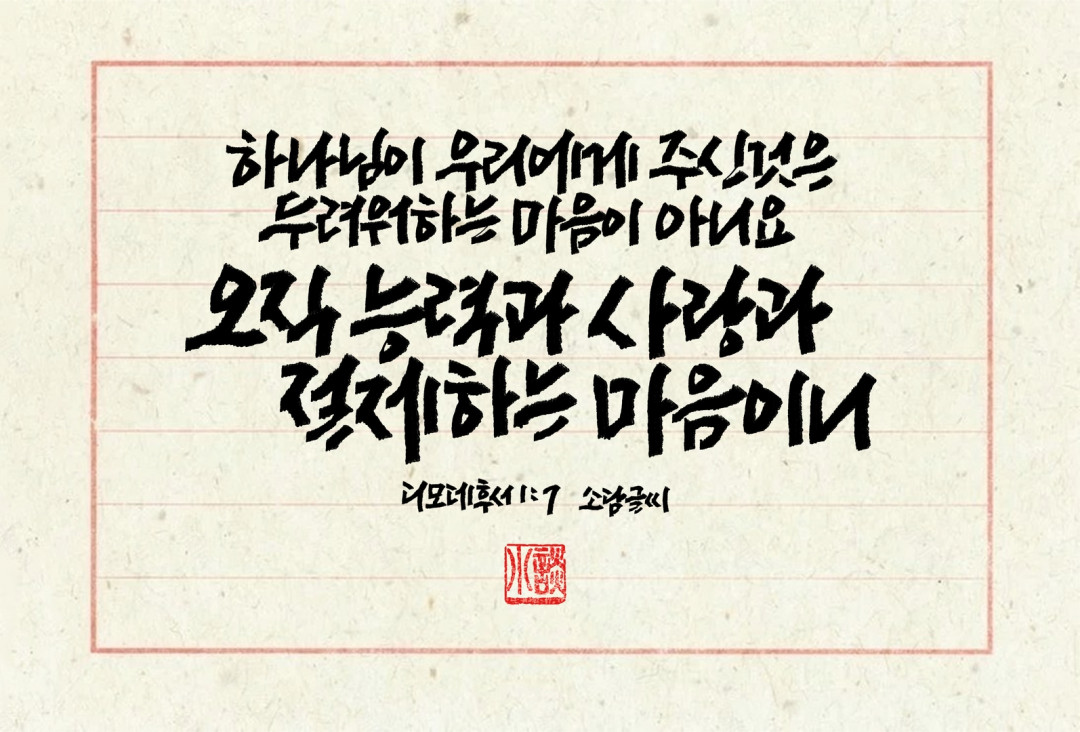 하나님이 우리에게 주신것은
두려워하는 마음이 아니요
오직 능력과 사랑과
절제하는 마음이니
디모데후서 1:7 소담글씨
小談